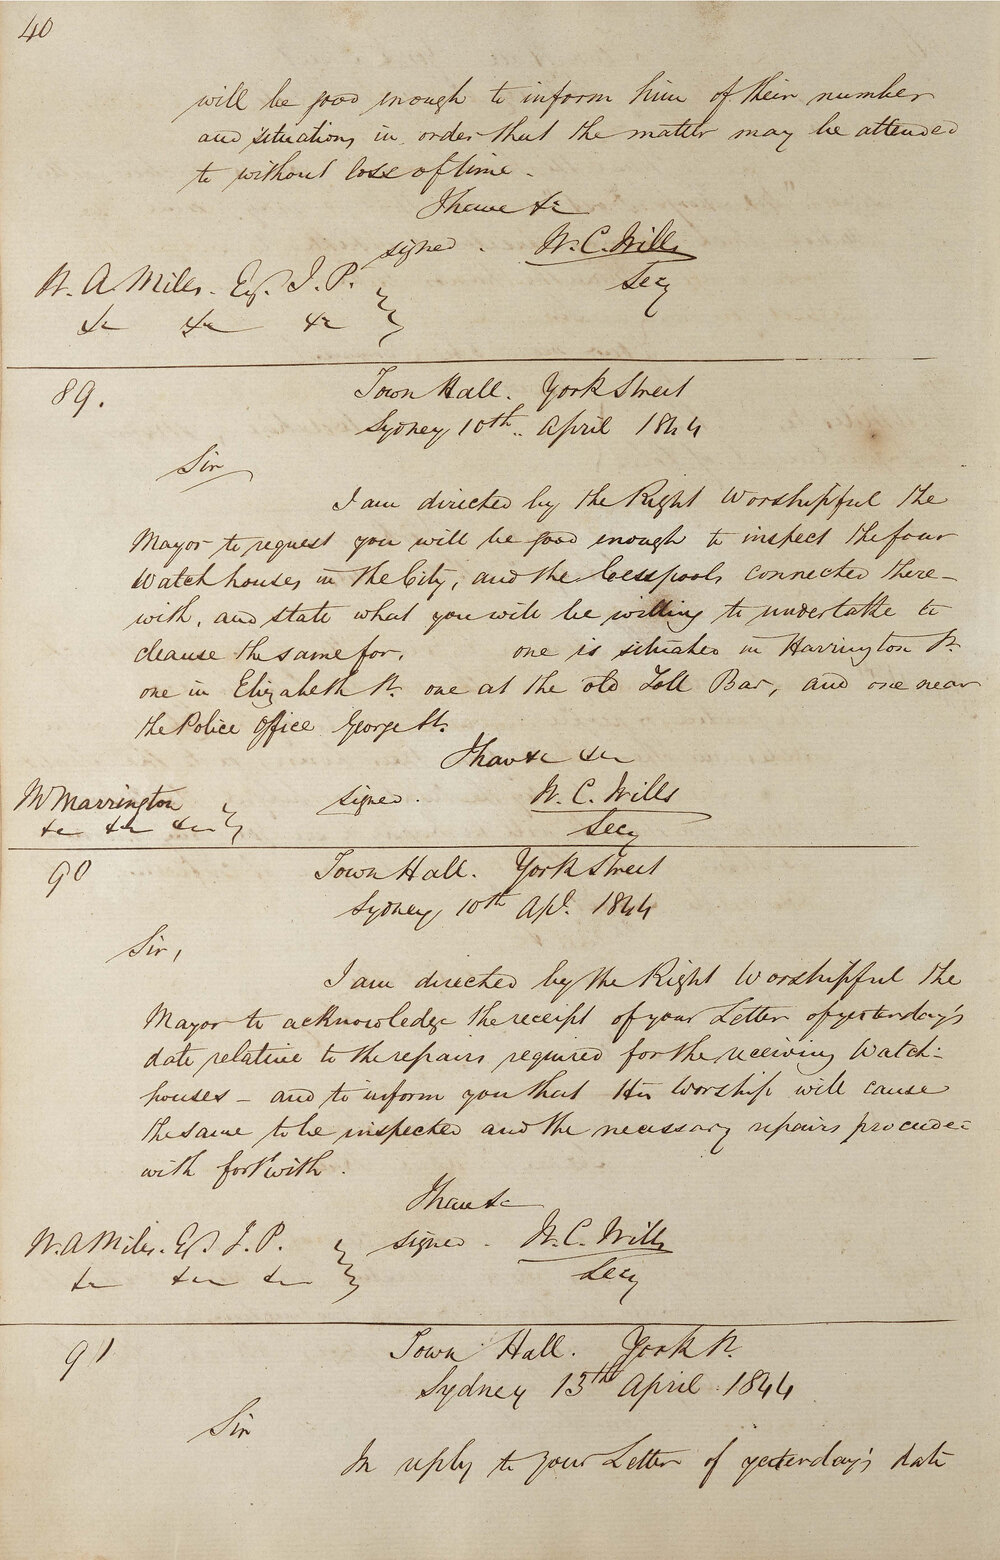 40
will be good enough to inform him of their number
and situations in order that the matter may be attended
to without loss of time.
I have &c
signed. W. C. Wills
Secy
W. A. Miles. Esq. J. P.
&c &c &c
89.
Town Hall. York Street
Sydney 10th.. April 1844
Sir
I am directed by the Right Worshipful the
Mayor to request you will be good enough to inspect the four
Watch houses in the City, and the Cesspools connected there-
with, and state what you will be willing to undertake to
cleanse the same for, one is situated in Harrington St.
one in Elizabeth St. one at the old Toll Bar, and one near
the Police Office George St.
I have &c &c
signed. W. C. Wills
Secy
Mr Marrington
&c &c &c
90
Town Hall. York Street
Sydney 10th Apl. 1844
Sir,
I am directed by the Right Worshipful the
Mayor to acknowledge the receipt of your Letter of yesterday's
date relative to the repairs required for the receiving Watch-
houses - and to inform you that His Worship will cause
the same to be inspected and the necessary repairs proceeded
with forthwith.
I have &c
signed. W. C. Wills
Secy
W. A Miles. Esq. J. P.
&c &c &c
91
Town Hall. York St.
Sydney 13th April 1844
Sir
In reply to your Letter of yesterday's date